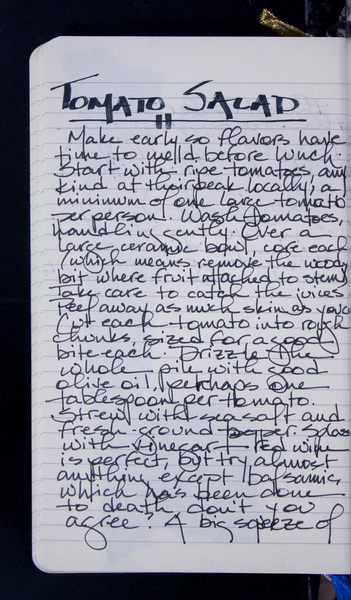 TOMATO SALAD
Make early so flavors have
time to meld before lunch.
Start with ripe tomatoes, any
kind at their peak locally, a
minimum of one large tomato
per person. Wash tomatoes
handling gently. Over a
large ceramic bowl, core each
(which means remove the woody
bit where fruit attached to stem)
Take care to catch the juices
Peel away as much skin as you can
Cut each tomato into rough
chunks, sized for a good
bite each. Drizzle the
whole pile with good
olive oil, perhaps one
tablespoon per tomato.
Strew with sea salt and
fresh ground pepper. Splash
with vinegar - red wine
is perfect, but try almost
anything except balsamic,
which has been done
to death, don't you
agree? A big squeeze of